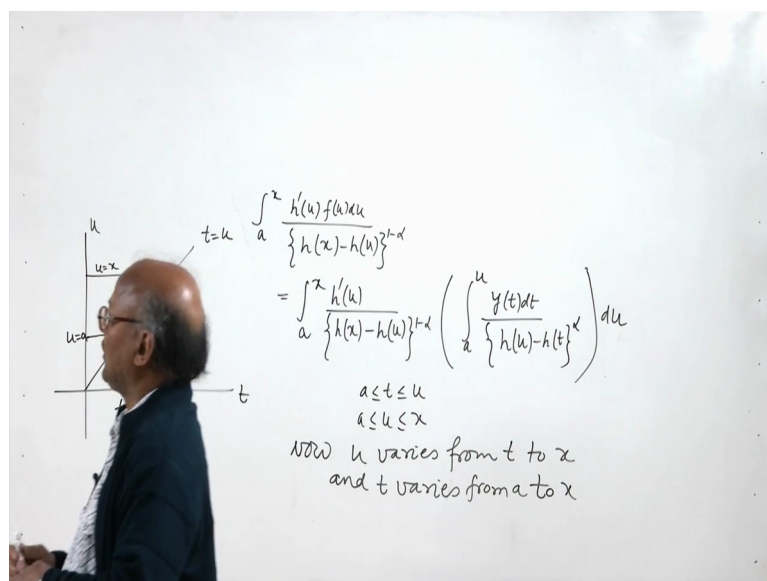 u
u=x
t=u
u=a
t
∫_a^x h'(u) f(u) du / {h(x)-h(u)}^{1-α}
= ∫_a^x h'(u) / {h(x)-h(u)}^{1-α} ( ∫_a^u y(t)dt / {h(u)-h(t)}^α ) du
a≤t≤u
a≤u≤x
Now u varies from t to x
and t varies from a to x